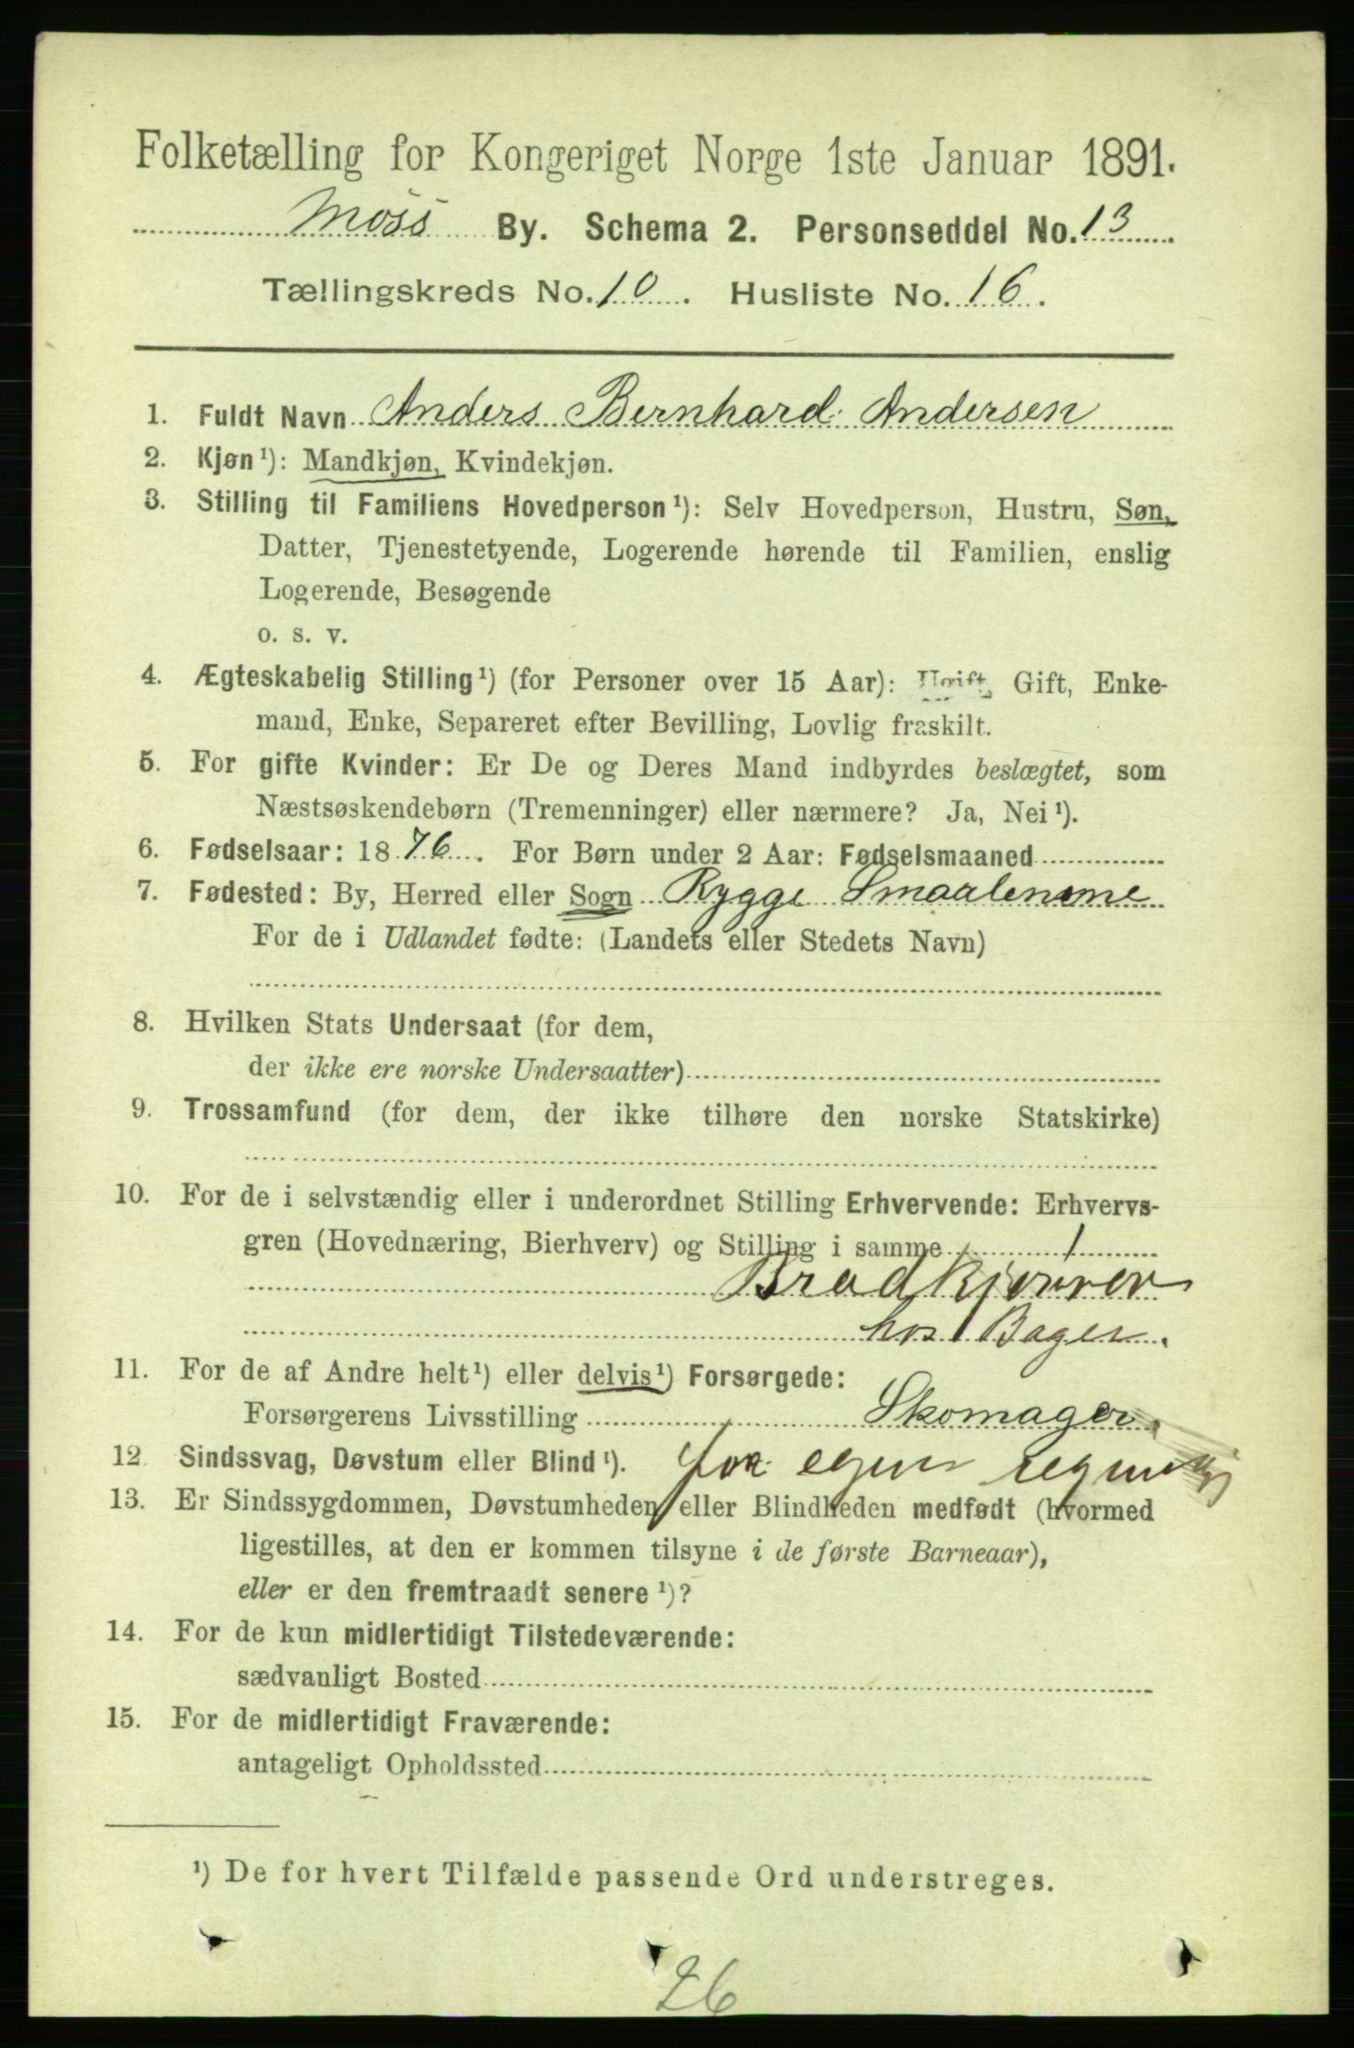 Folketælling for Kongeriget Norge 1ste Januar 1891.
Moss By. Schema 2. Personseddel No. 13
Tællingskreds No. 10. Husliste No. 16.
1. Fuldt Navn Anders Bernhard Andersen
2. Kjøn¹): Mandkjøn, Kvindekjøn.
3. Stilling til Familiens Hovedperson¹): Selv Hovedperson, Hustru, Søn,
Datter, Tjenestetyende, Logerende hørende til Familien, enslig
Logerende, Besøgende
o. s. v.
4. Ægteskabelig Stilling¹) (for Personer over 15 Aar): Ugift, Gift, Enke-
mand, Enke, Separeret efter Bevilling, Lovlig fraskilt.
5. For gifte Kvinder: Er De og Deres Mand indbyrdes beslægtet, som
Næstsøskendebørn (Tremenninger) eller nærmere? Ja, Nei¹).
6. Fødselsaar: 1876. For Børn under 2 Aar: Fødselsmaaned
7. Fødested: By, Herred eller Sogn Rygge Smaalenene
For de i Udlandet fødte: (Landets eller Stedets Navn)
8. Hvilken Stats Undersaat (for dem,
der ikke ere norske Undersaatter)
9. Trossamfund (for dem, der ikke tilhøre den norske Statskirke)
10. For de i selvstændig eller i underordnet Stilling Erhvervende: Erhvervs-
gren (Hovednæring, Bierhverv) og Stilling i samme
Brødkjører
hos Bager.
11. For de af Andre helt¹) eller delvis¹) Forsørgede:
Forsørgerens Livsstilling Skomager
12. Sindssvag, Døvstum eller Blind¹). for egen regning
13. Er Sindssygdommen, Døvstumheden eller Blindheden medfødt (hvormed
ligestilles, at den er kommen tilsyne i de første Barneaar),
eller er den fremtraadt senere¹)?
14. For de kun midlertidigt Tilstedeværende:
sædvanligt Bosted
15. For de midlertidigt Fraværende:
antageligt Opholdssted
¹) De for hvert Tilfælde passende Ord understreges.
26